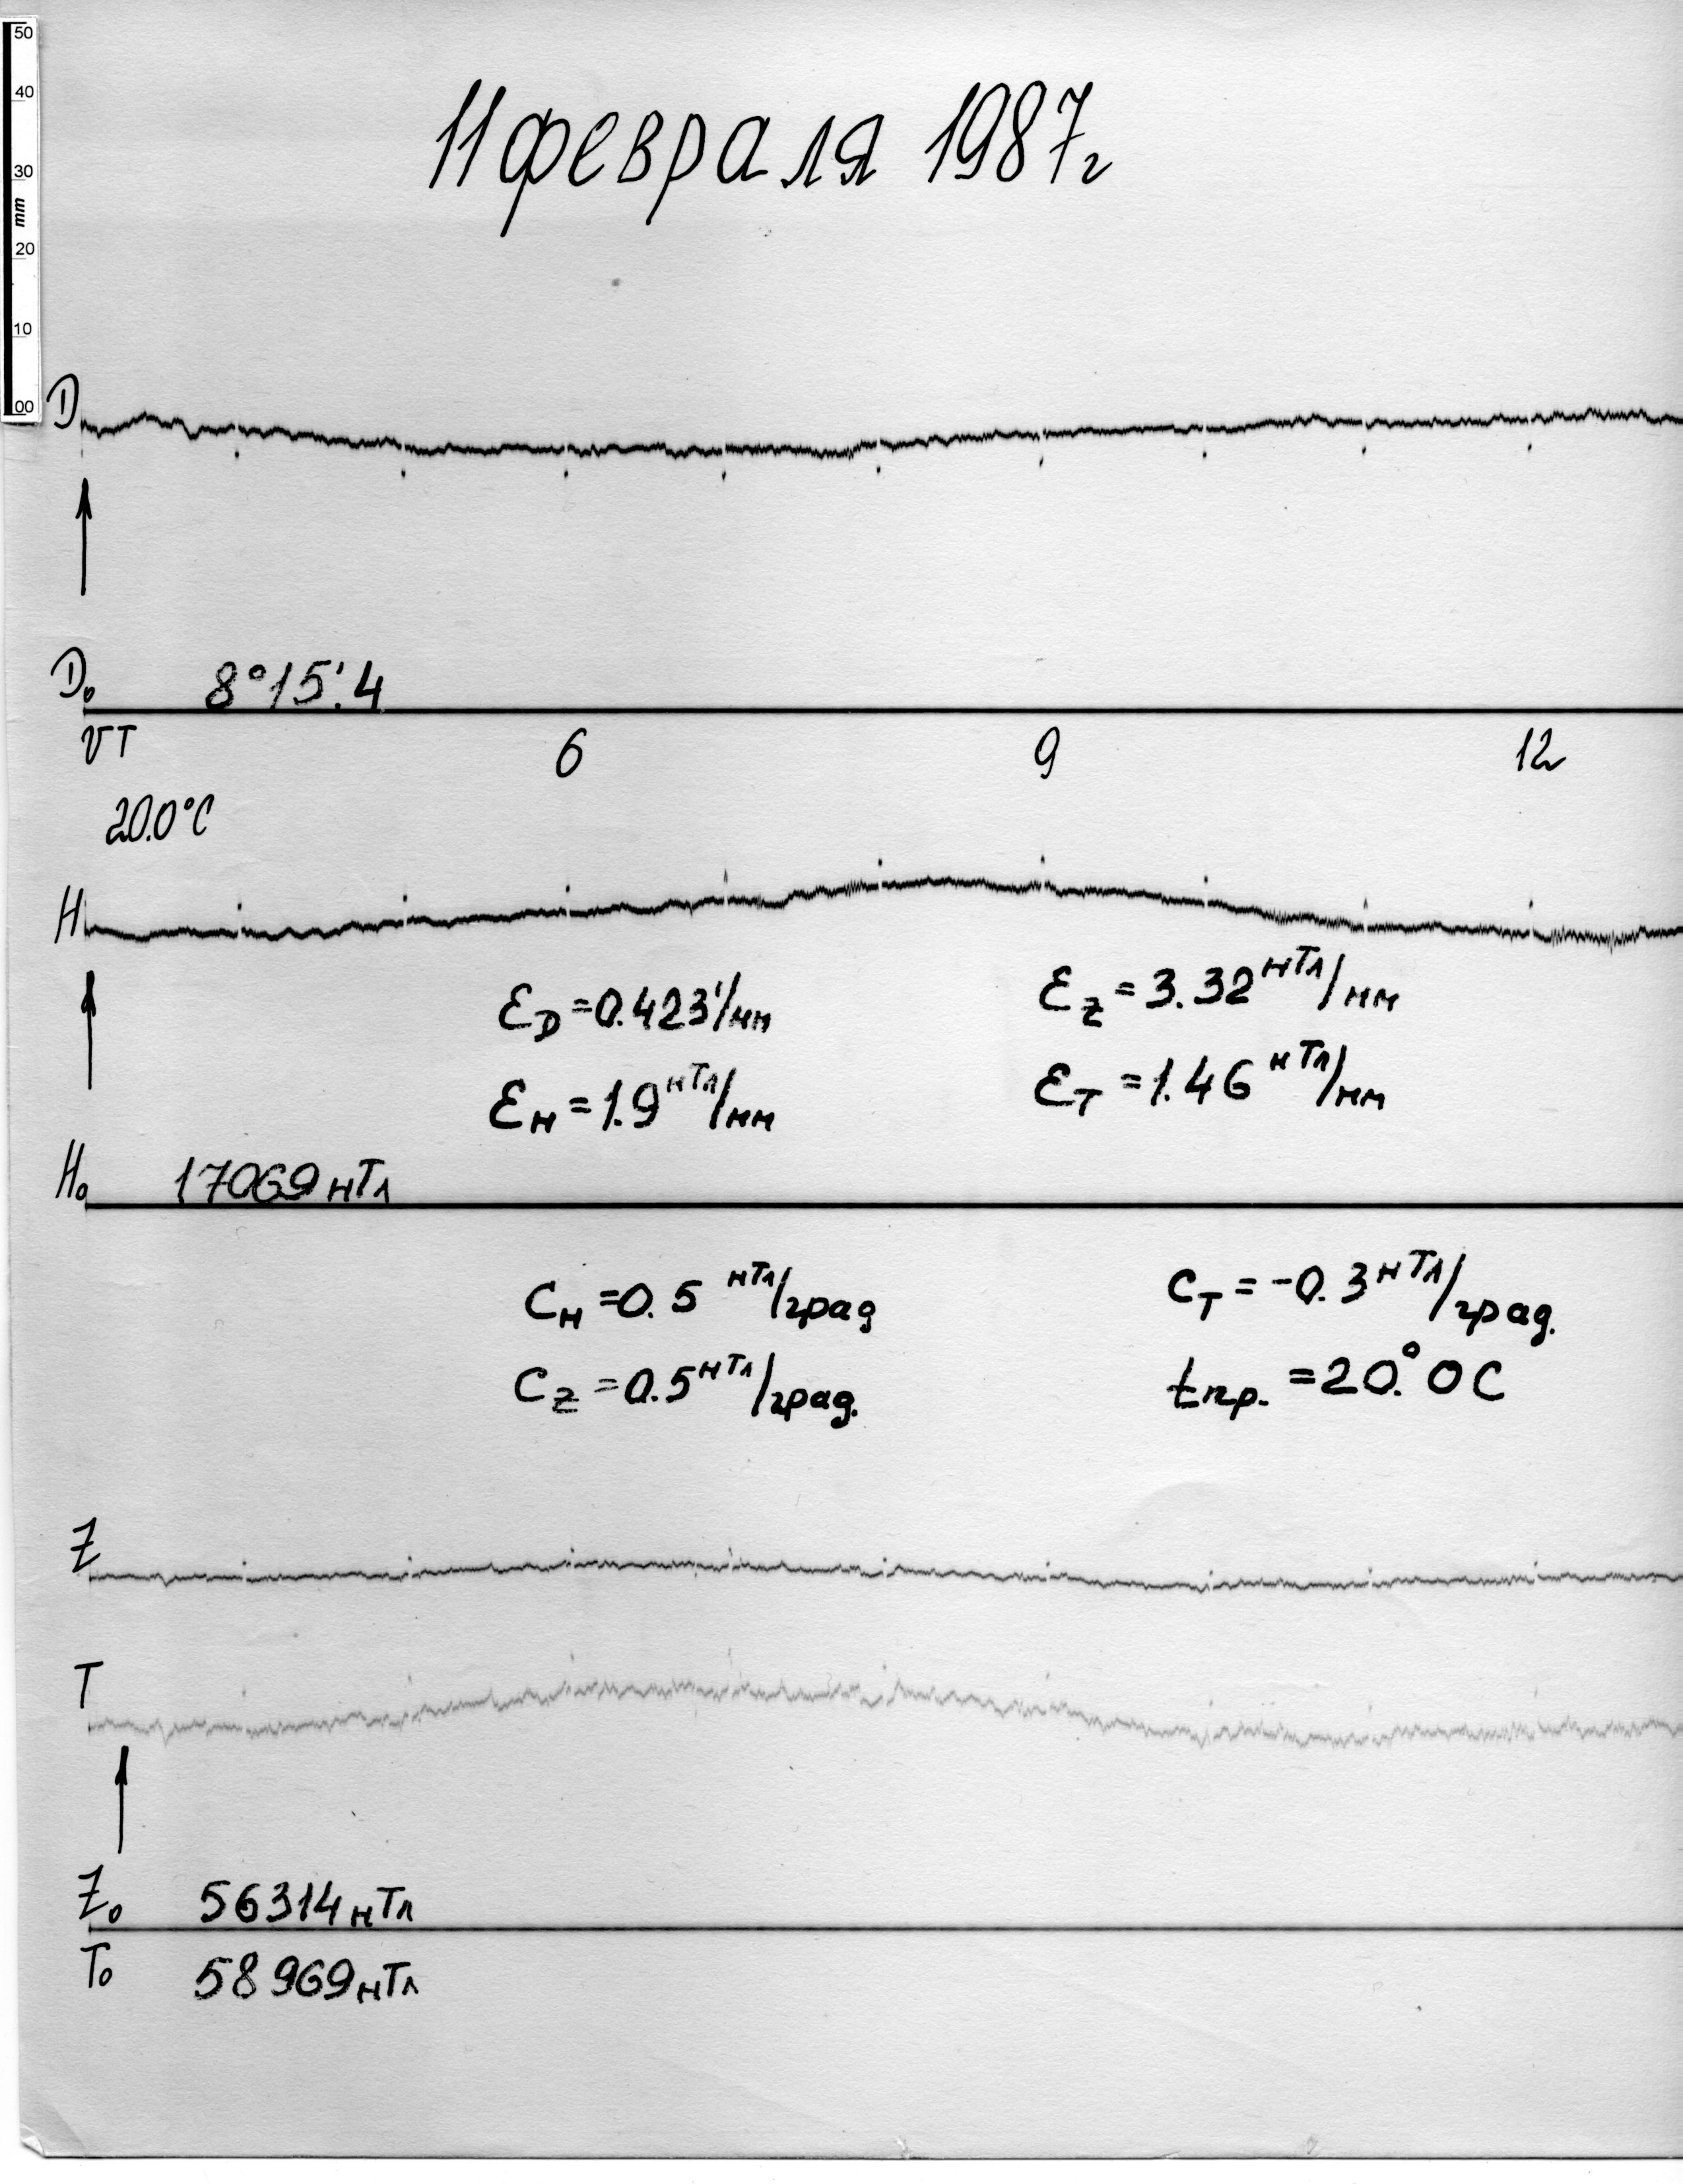 50
40
30
mm
20
10
00
11 февраля 1987г
D
D₀ 8°15'.4
UT 6 9 12
20.0°C
H
ε_D = 0.423'/мм ε_Z = 3.32 нТл/мм
ε_H = 1.9 нТл/мм ε_T = 1.46 нТл/мм
H₀ 17069 нТл
C_H = 0.5 нТл/град C_T = -0.3 нТл/град.
C_Z = 0.5 нТл/град. tпр. = 20.°0C
Z
T
Z₀ 56314 нТл
T₀ 58969 нТл